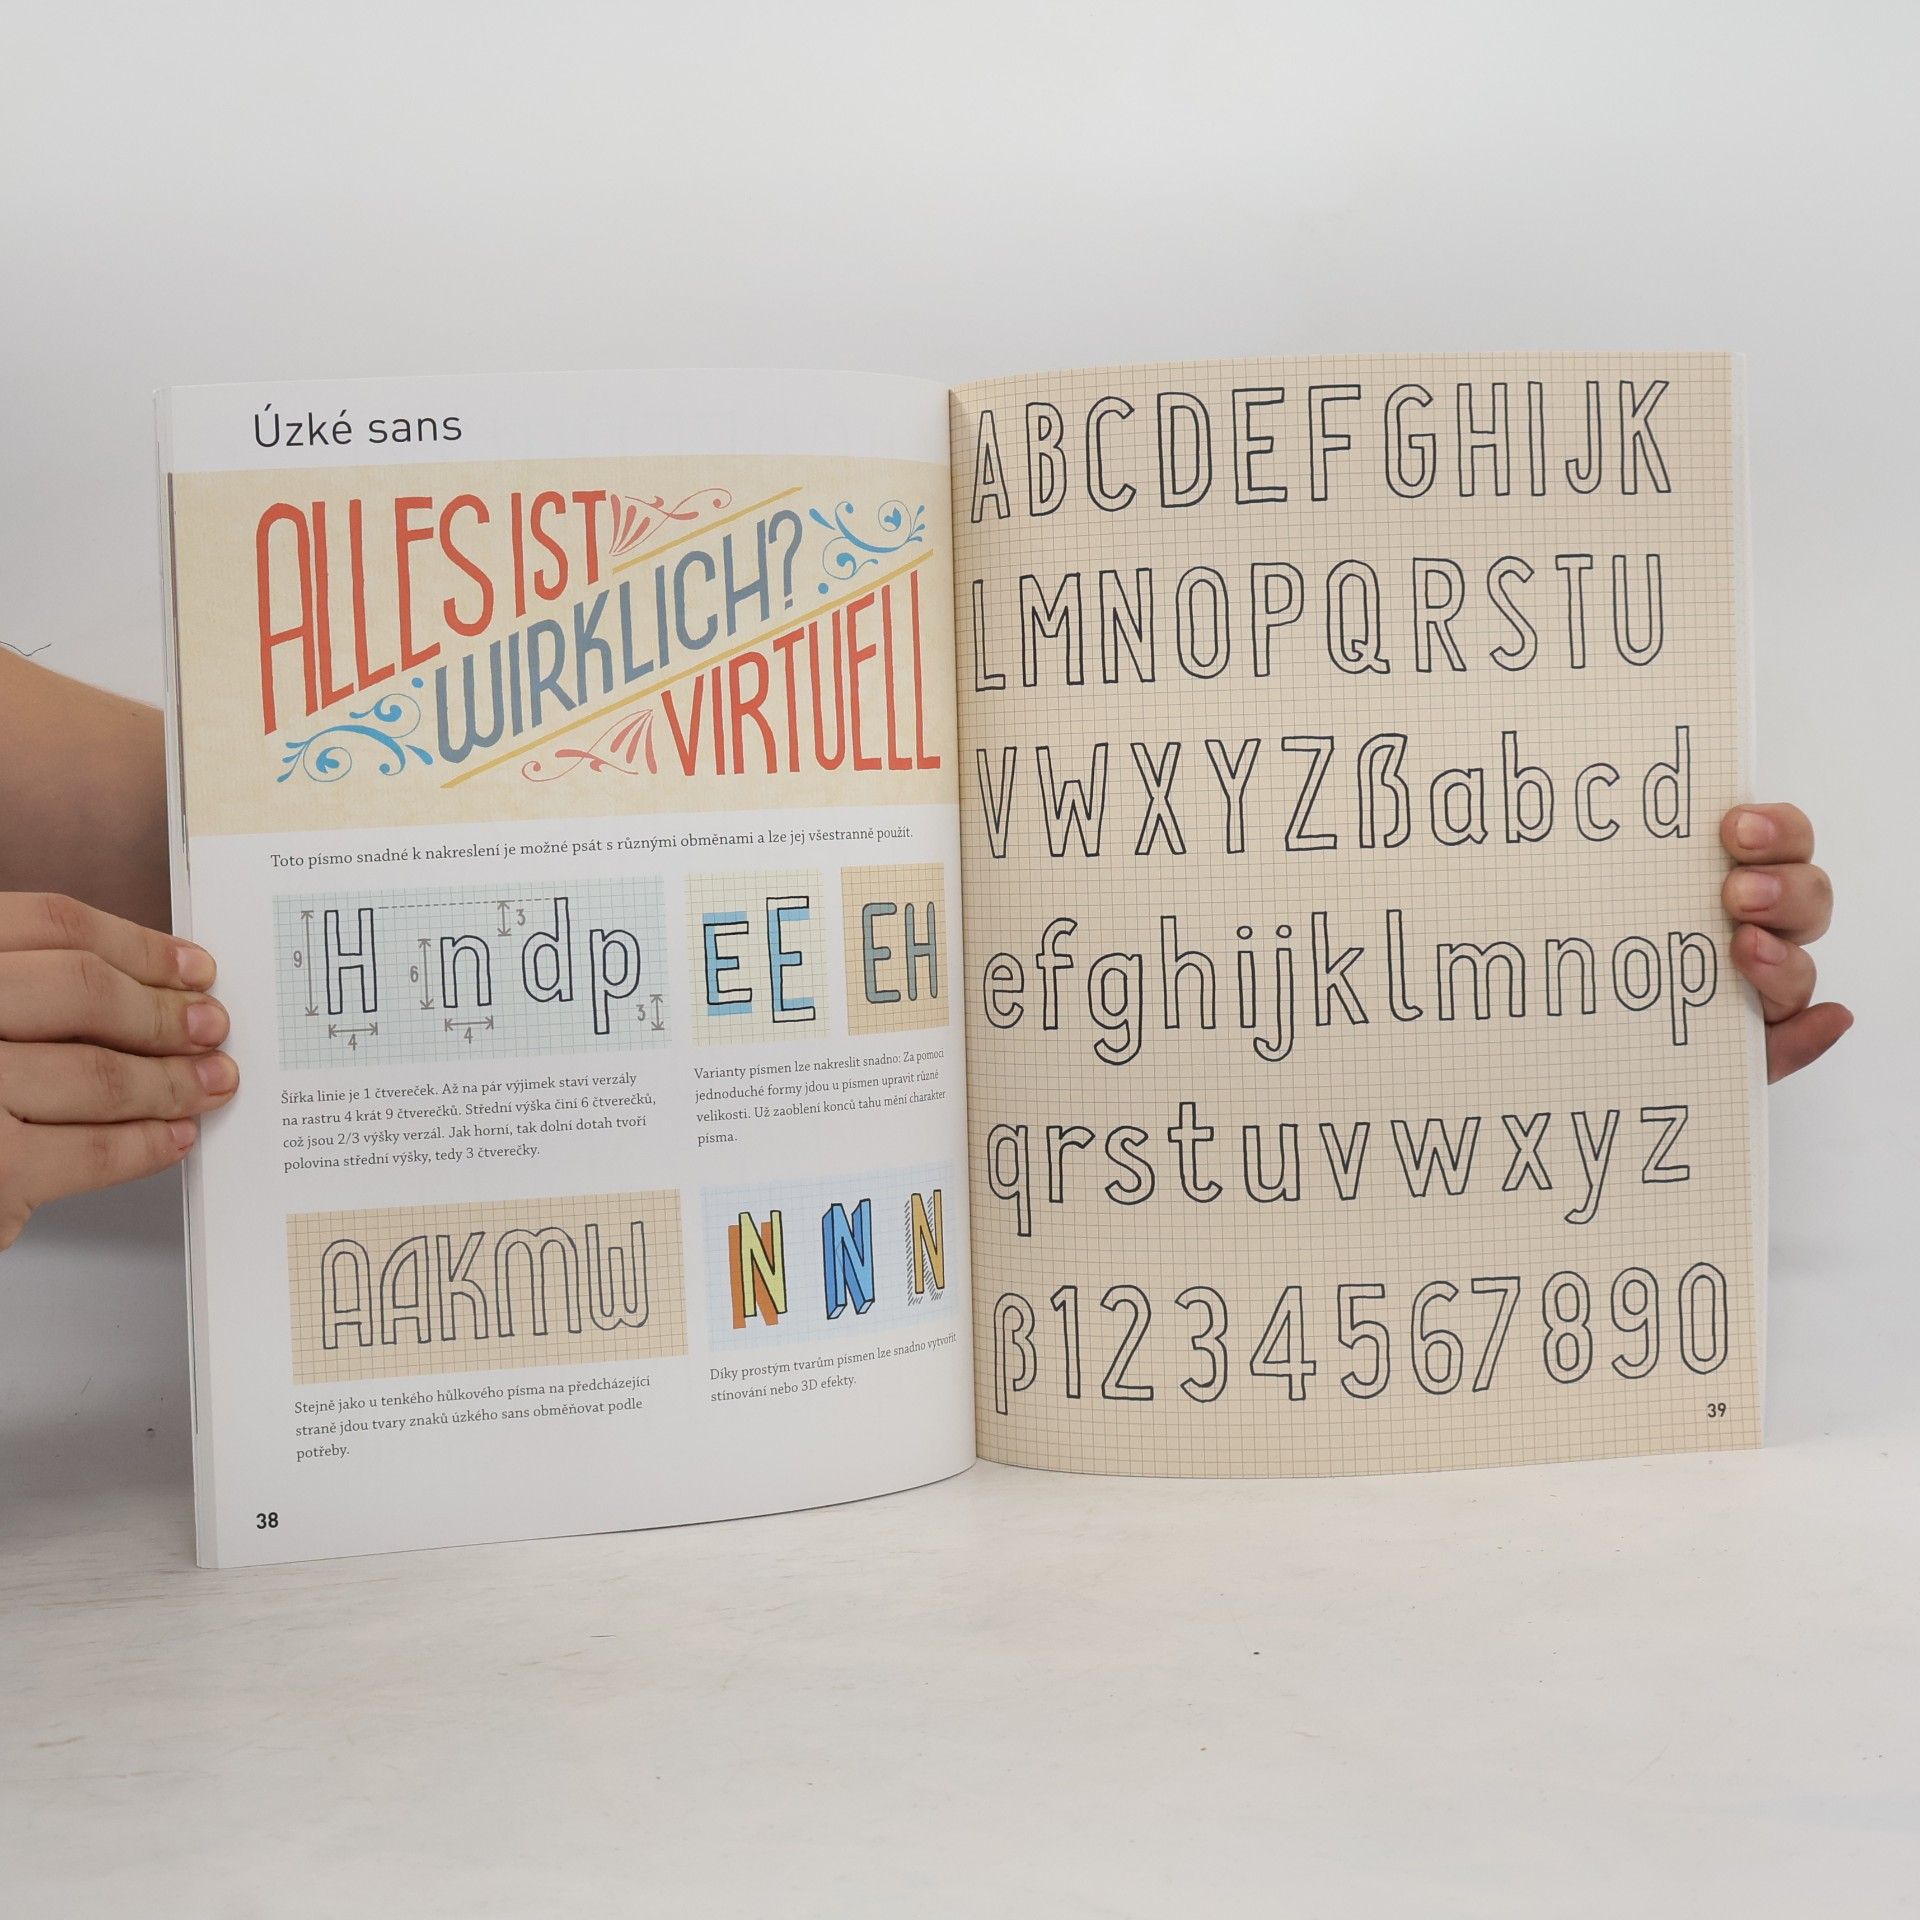 Úzké sans
ALLES IST
WIRKLICH?
VIRTUELL
Toto písmo snadné k nakreslení je možné psát s různými obměnami a lze jej všestranně použít.
9 H 4 6 n 4 3 d p 3
E E
EH
Šířka linie je 1 čtvereček. Až na pár výjimek staví verzály
na rastru 4 krát 9 čtverečků. Střední výška činí 6 čtverečků,
což jsou 2/3 výšky verzál. Jak horní, tak dolní dotah tvoří
polovina střední výšky, tedy 3 čtverečky.
Varianty písmen lze nakreslit snadno: Za pomoci
jednoduché formy jdou u písmen upravit různé
velikosti. Už zaoblení konců tahu mění charakter
písma.
AAKMW
N N N
Stejně jako u tenkého hůlkového písma na předcházející
straně jdou tvary znaků úzkého sans obměňovat podle
potřeby.
Díky prostým tvarům písmen lze snadno vytvořit
stínování nebo 3D efekty.
38
ABCDEFGHIJK
LMNOPQRSTU
VWXYZßabcd
efghijklmnop
qrstuvwxyz
ß1234567890
39